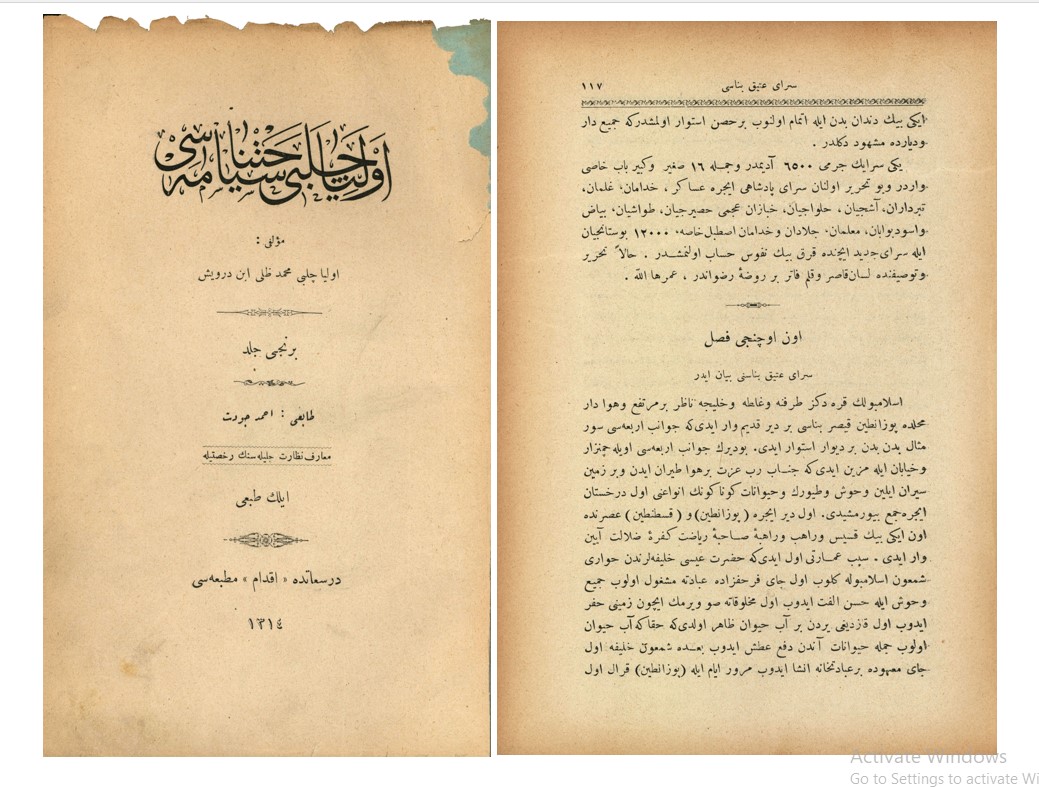 اوليا چلبى سياحتنامه سى
مؤلفى :
اوليا چلبى محمد ظلى ابن درويش
برنجى جلد
طابعى : احمد جودت
معارف نظارت جليله سنك رخصتيله
ايلك طبعى
درسعادتده « اقدام » مطبعه سى
١٣١٤
سراى عتيق بناسى ١١٧
ايكى بيك دندان بدن ايله اتمام اولنوب برحصن استوار اولمشدركه جميع دار
وديارده مشهود دكلدر .
يكى سرايك جرمى ٦٥٠٠ آديمدر وجمله ١٦ صغير وكبير باب خاصى
واردر وبو تحرير اولنان سراى پادشاهى ايچره عساكر ، خدامان، غلمان،
تبرداران، آشجيان ، حلواجيان، خبازان عجمى حصيرجيان، طواشيان، بياض
واسودبوابان، معلمان، جلادان وخدامان اصطبل خاصه، ١٢٠٠٠ بوستانجيان
ايله سراى جديد ايچنده قرق بيك نفوس حساب اولنمشدر . حالا تحرير
وتوصيفنده لسان قاصر وقلم فاتر بر روضهٔ رضواندر ، عمرها الله .
اون اوچنجى فصل
سراى عتيق بناسنى بيان ايدر
اسلامبولك قره دكز طرفنه وغلطه وخليجه ناظر برمرتفع وهوا دار
محلده يوزانطين قيصر بناسى بر دير قديم وار ايدى كه جوانب اربعه سى سور
مثال بدن بدن بر ديوار استوار ايدى. بوديرك جوانب اربعه سى اويله چمنزار
وخيابان ايله مزين ايدى كه جناب رب عزت برهوا طيران ايدن وبر زمين
سيران ايلين وحوش وطيورك وحيوانات كوناكونك انواعنى اول درختستان
ايچره جمع بيورمشيدى. اول دير ايچره ( يوزانطين) و ( قسطنطين ) عصرنده
اون ايكى بيك قسيس وراهب وراهبهٔ صاحبهٔ رياضت كفرهٔ ضلالت آيين
وار ايدى . سبب عمارتى اول ايدى كه حضرت عيسى خليفه لرندن حوارى
شمعون اسلامبوله كلوب اول جاى فرحفزاده عبادته مشغول اولوب جميع
وحوش ايله حسن الفت ايدوب اول مخلوقاته صو ويرمك ايچون زمينى حفر
ايدوب اول قازديغى يردن بر آب حيوان ظاهر اولدى كه حقاكه آب حيوان
اولوب جمله حيوانات آندن دفع عطش ايدوب بعده شمعون خليفه اول
جاى معهوده برعبادتخانه انشا ايدوب مرور ايام ايله (يوزانطين) قرال اول
Activate Windows
Go to Settings to activate Wi